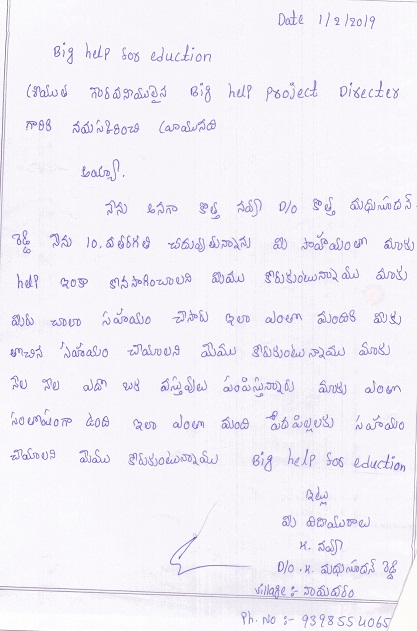 Date 1/2/2019
Big help for eduction
శ్రీయుత గౌరవనీయులైన Big help project Directer
గారికి నమస్కరించి వ్రాయునది
అయ్యా.
నేను అనగా కొత్త నవ్య D/o కొత్త మధుసూదన్
రెడ్డి నేను 10.వ తరగతి చదువుతున్నాను మీ సాహయంతో మాకు
help ఇంకా కొనసాగించాలని మేము కోరుకుంటున్నాము మాకు
మీరు చాలా సహాయం చేసారు ఇలా ఎంతో మందికి మీకు
తోచిన సహాయం చేయాలని మేము కోరుకుంటున్నాము మాకు
నెల నెల ఎదో ఒక వస్తువులు పంపిస్తున్నారు మాకు ఎంతో
సంతోషంగా ఉంది ఇలా ఎంతో మంది పేదపిల్లలకు సహాయం
చేయాలని మేము కోరుకుంటున్నాము Big help for eduction
ఇట్లు
మీ విధేయురాలు
K. నవ్య
D/o. K. మధుసూదన్ రెడ్డి
village :-
Ph. No :- 9398554065